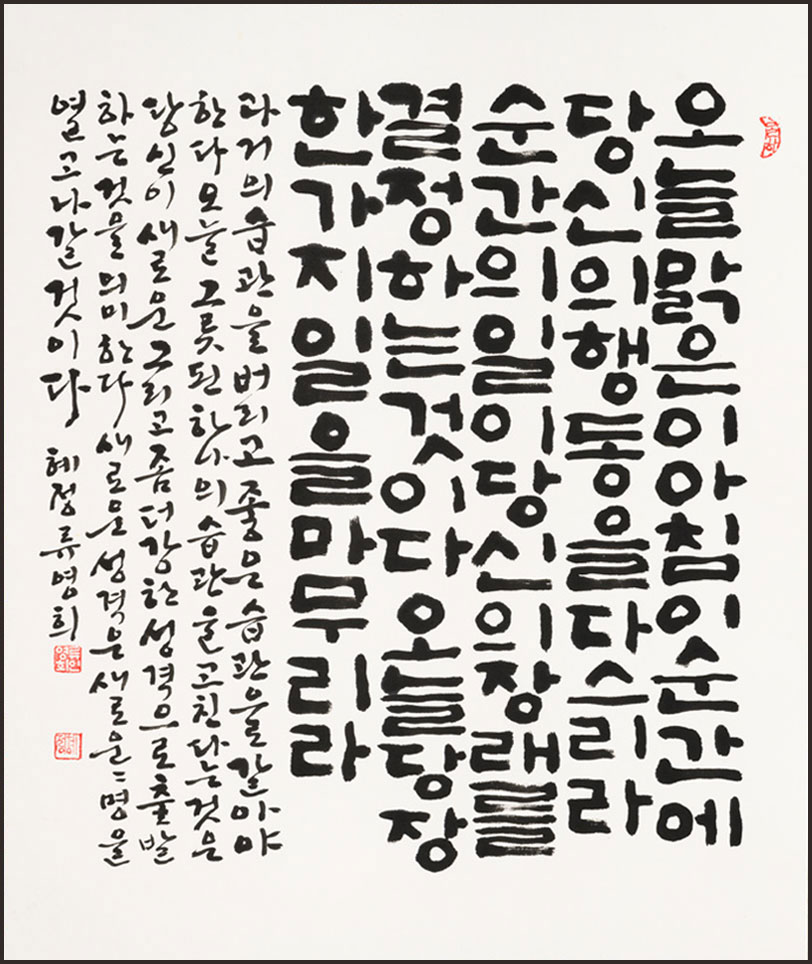 오늘맑은이아침이순간에
당신의행동을다스리라
순간의일이당신의장래를
결정하는것이다 오늘당장
한가지일을마무리라
과거의습관을버리고좋은습관을갈아야
한다오늘그릇된하나의습관을고친다는것은
당신이새로운그리고좀더강한성격으로출발
하는것을의미한다새로운성격은새로운〻명을
열고나갈것이다 혜정류영희